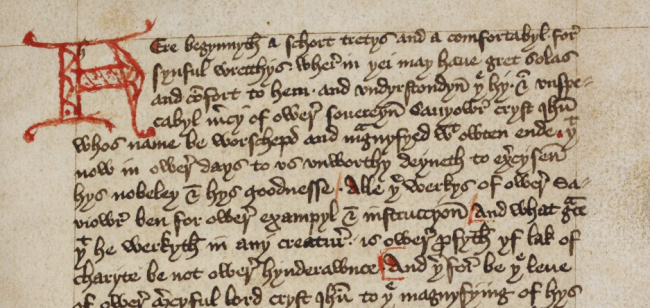 Here begynnyth a schort tretys and a comfortabyl for
synful wrecchys. wher in þei may haue gret solas
and cōfort to hem. and vndyrstondyn þᵉ hy. & vnspe-
cabyl m̄cy of ower souereyn Sauyowr cryst ihū
whos name be worschepd and magnyfyed wᵗ owten ende. þᵗ
now in ower days to vs vnworthy deyneth to ex̄cysen
hys nobeley & hys goodnesse. Alle þᵉ werkys of ower Sa-
viowr ben for ower exampyl & instruccyon̄. And what gᵃce
þᵗ he werkyth in any creatur. is ower ꝓfyth yf lak of
charyte be not ower hynderawnce. And þ̄for be þᵉ leue
of ower m̄cyful lord cryst ihū to þᵉ magnyfying of hys